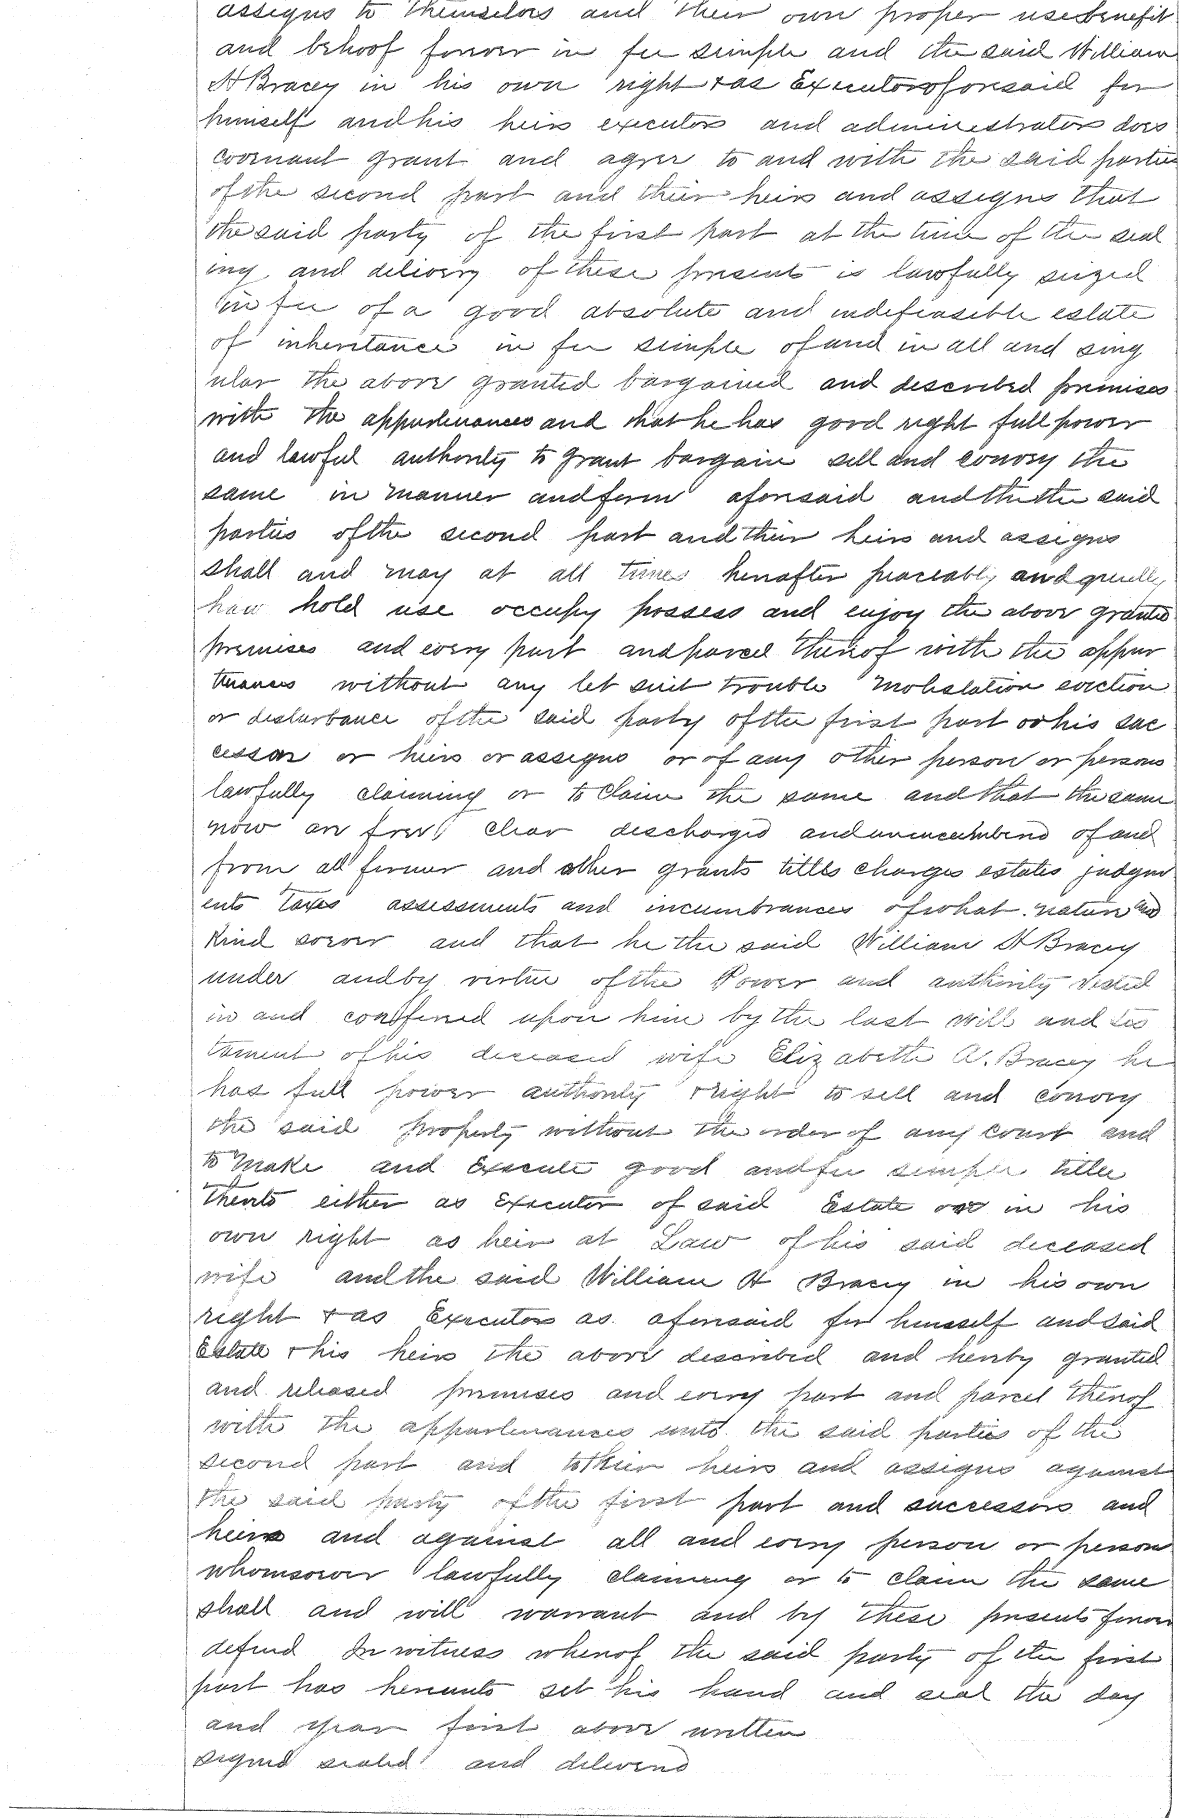 assigns to themselves and their own proper use benefit
and behoof forever in fee simple and the said William
H Bracey in his own right & as Executor aforesaid for
himself and his heirs executors and administrators does
covenant grant and agree to and with the said parties
of the second part and their heirs and assigns that
the said party of the first part at the time of the seal
ing and delivery of these presents is lawfully seized
in fee of a good absolute and indefeasible estate
of inheritance in fee simple of and in all and sing
ular the above granted bargained and described premises
with the appurtenances and that he has good right full power
and lawful authority to grant bargain sell and convey the
same in manner and form aforesaid and the the said
parties of the second part and their heirs and assigns
shall and may at all times hereafter peaceably and quietly
have hold use occupy possess and enjoy the above granted
premises and every part and parcel thereof with the appur
tenances without any let suit trouble molestation eviction
or disturbance of the said party of the first part or his suc
cessor or heirs or assigns or of any other person or persons
lawfully claiming or to claim the same and that the same
now are free clear discharged and unincumbered of and
from all former and other grants titles charges estates judgm
ents taxes assessments and incumbrances of what nature and
Kind soever and that he the said William H Bracey
under and by virtue of the Power and authority vested
in and conferred upon him by the last will and tes
tament of his deceased wife Elizabeth A. Bracey he
has full power authority & right to sell and convey
the said property without the order of any court and
to make and Execute good and fee simple titles
thereto either as Executor of said Estate or in his
own right as heir at Law of his said deceased
wife and the said William H Bracey in his own
right & as Executor as aforesaid for himself and said
Estate & his heirs the above described and hereby granted
and released premises and every part and parcel thereof
with the appurtenances unto the said parties of the
second part and to their heirs and assigns against
the said party of the first part and successors and
heirs and against all and every person or person
whomsoever lawfully claiming or to claim the same
shall and will warrant and by these presents forever
defend In witness whereof the said party of the first
part has hereunto set his hand and seal the day
and year first above written
signed sealed and delivered